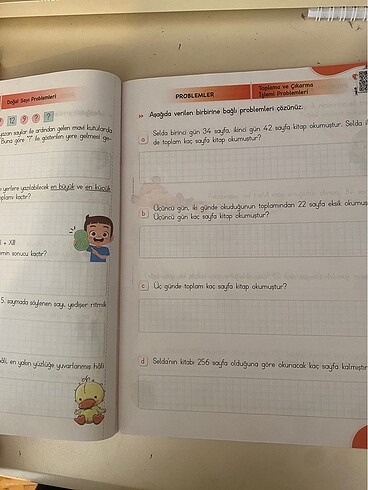 Doğal Sayı Problemleri
12 9 ? ?
yazan sayılar ile ardından gelen mavi kutularda
Buna göre "?" ile gösterilen yere gelmesi ge-
yerlere yazılabilecek en büyük ve en küçük
toplamı kaçtır?
+ XII
işlemin sonucu kaçtır?
5. saymada söylenen sayı, yedişer ritmik
hâli, en yakın yüzlüğe yuvarlanmış hâli
PROBLEMLER
Toplama ve Çıkarma
İşlemi Problemleri
Aşağıda verilen birbirine bağlı problemleri çözünüz.
a Selda birinci gün 34 sayfa, ikinci gün 42 sayfa kitap okumuştur. Selda i
de toplam kaç sayfa kitap okumuştur?
b Üçüncü gün, iki günde okuduğunun toplamından 22 sayfa eksik okumuş
Üçüncü gün kaç sayfa kitap okumuştur?
c Üç günde toplam kaç sayfa kitap okumuştur?
d Selda'nın kitabı 256 sayfa olduğuna göre okunacak kaç sayfa kalmıştır